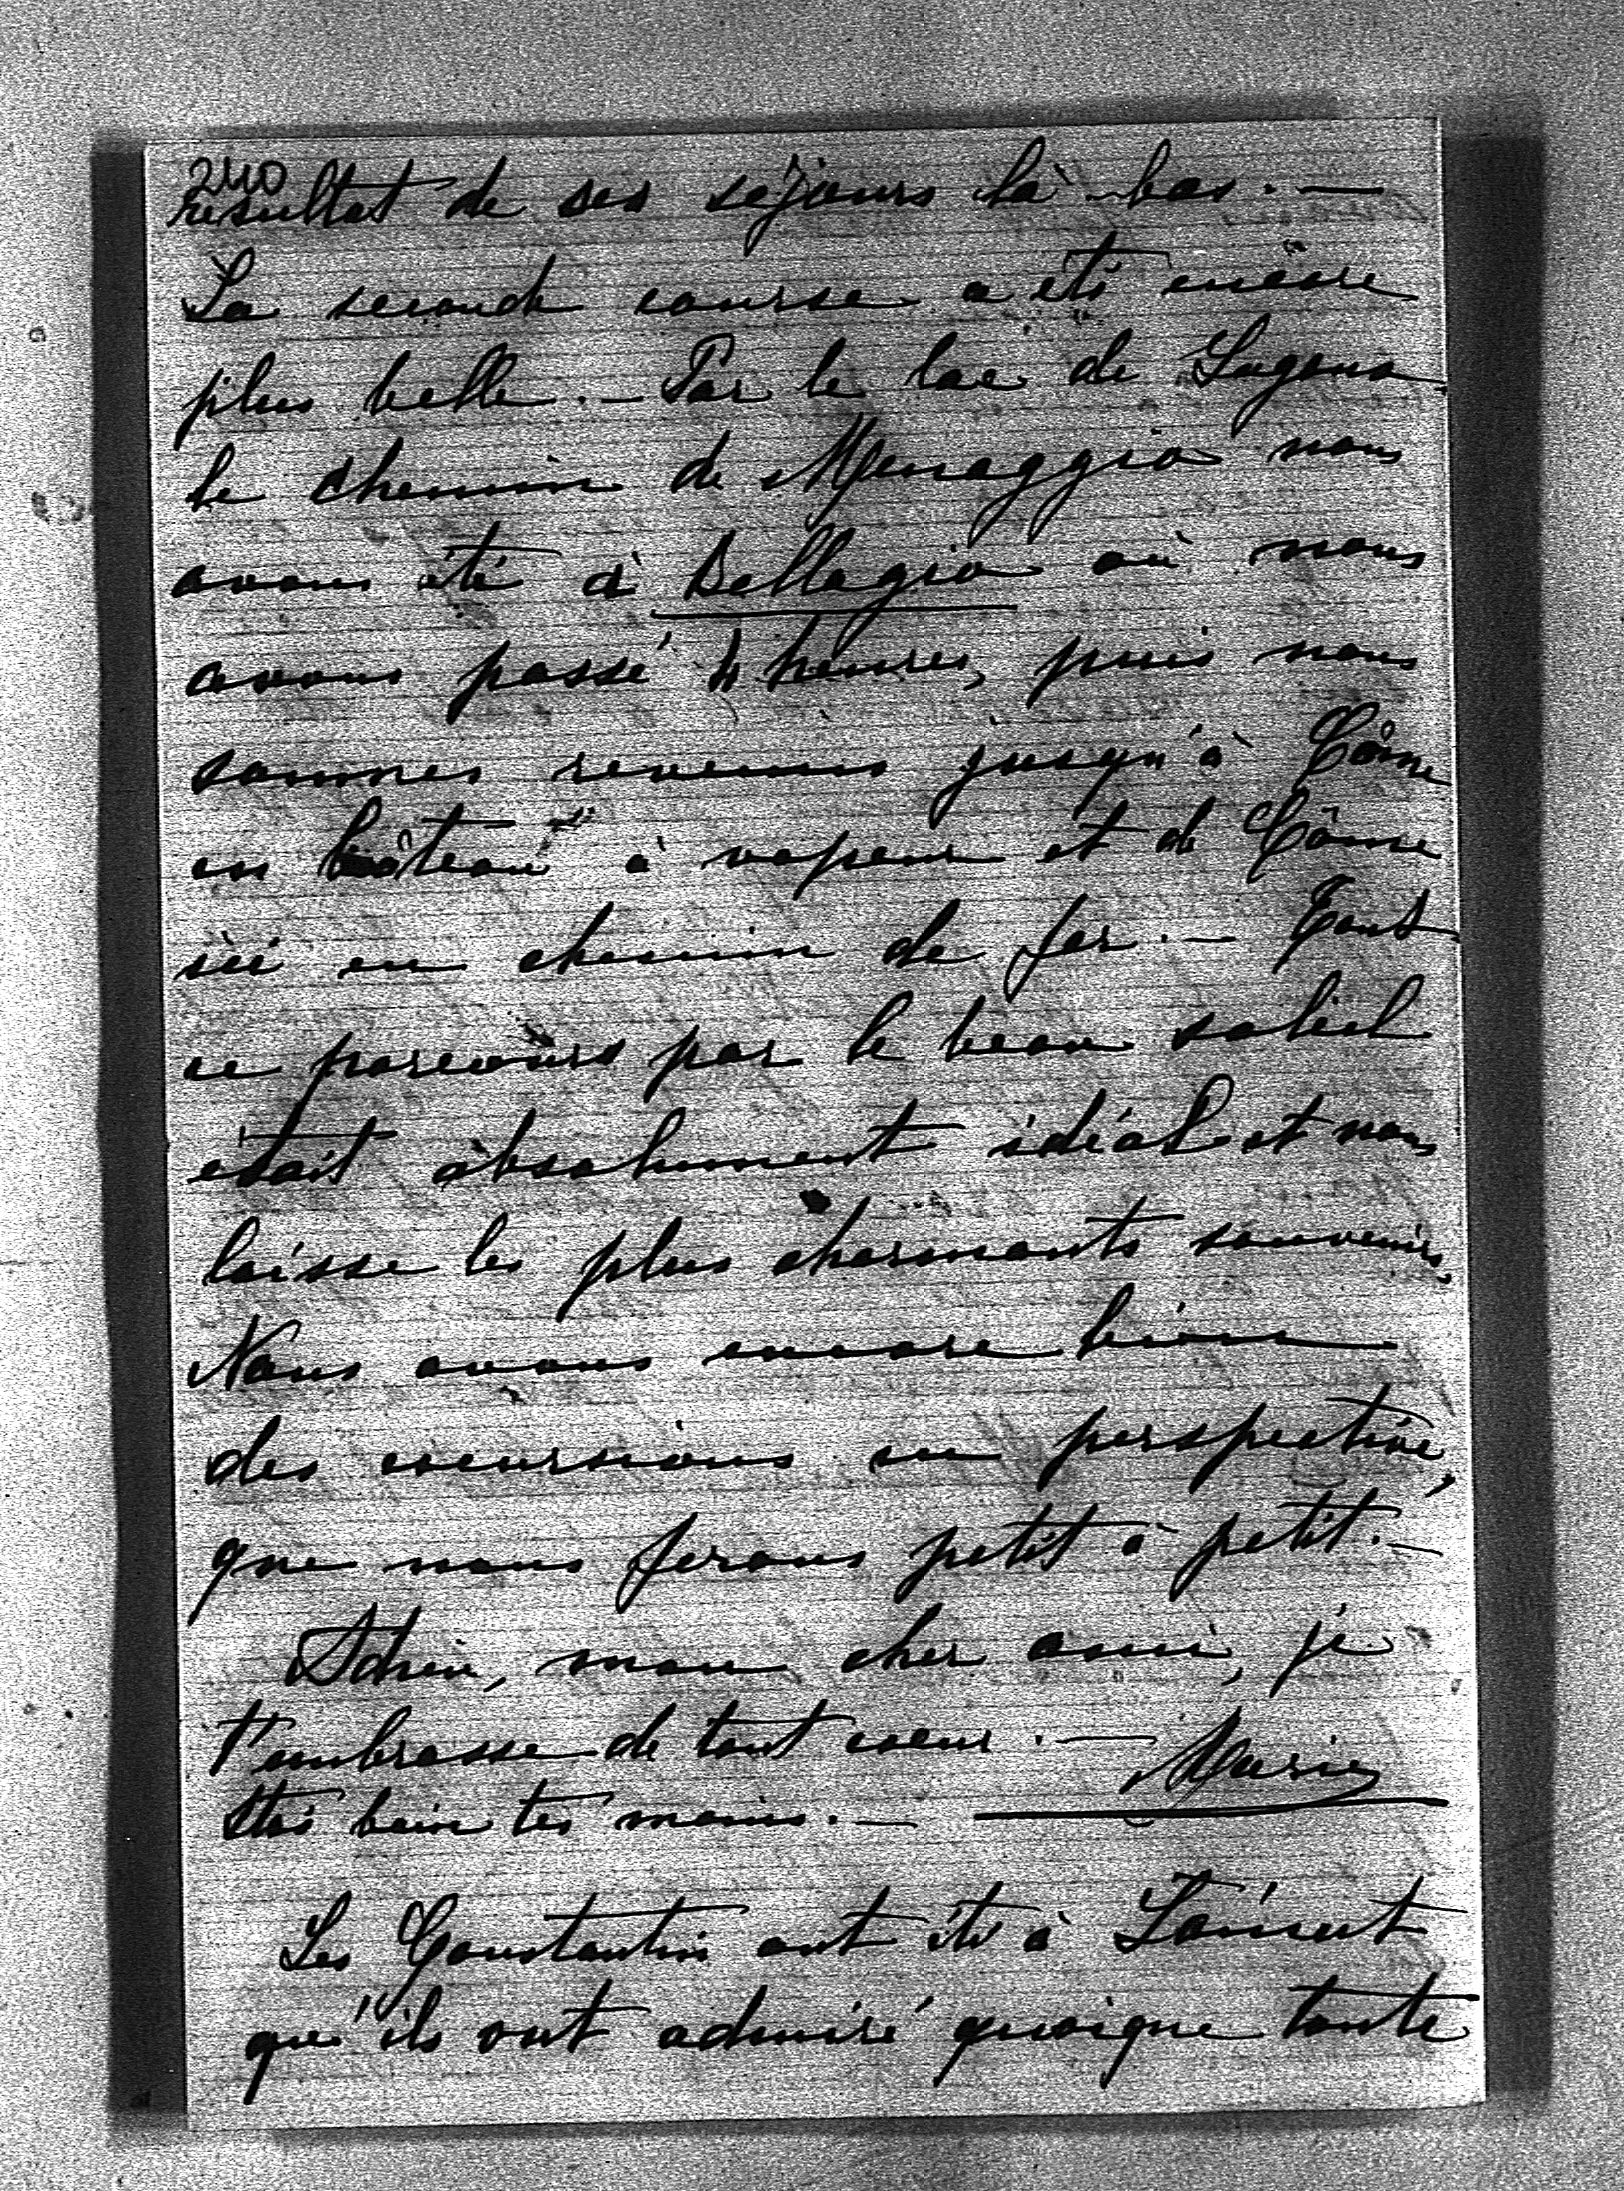 240
résultat de ses séjours là-bas. —
La seconde course a été encore
plus belle. — Par le lac de Lugano
le chemin de Menaggio nous
avons été à Bellagio où nous
avons passé 4 heures, puis nous
sommes revenus jusqu'à Côme
en bâteau à vapeur et de Côme
ici en chemin de fer. — Tout
ce parcours par le beau soleil
était absolument idéal et nous
laisse les plus charmants souvenirs.
Nous avons encore bien
des excursions en perspective,
que nous ferons petit à petit. —
Adieu, mon cher ami, je
t'embrasse de tout coeur. — Marie
baise tes mains. —
Les Constantin ont été à
qu'ils ont admiré quoique toute